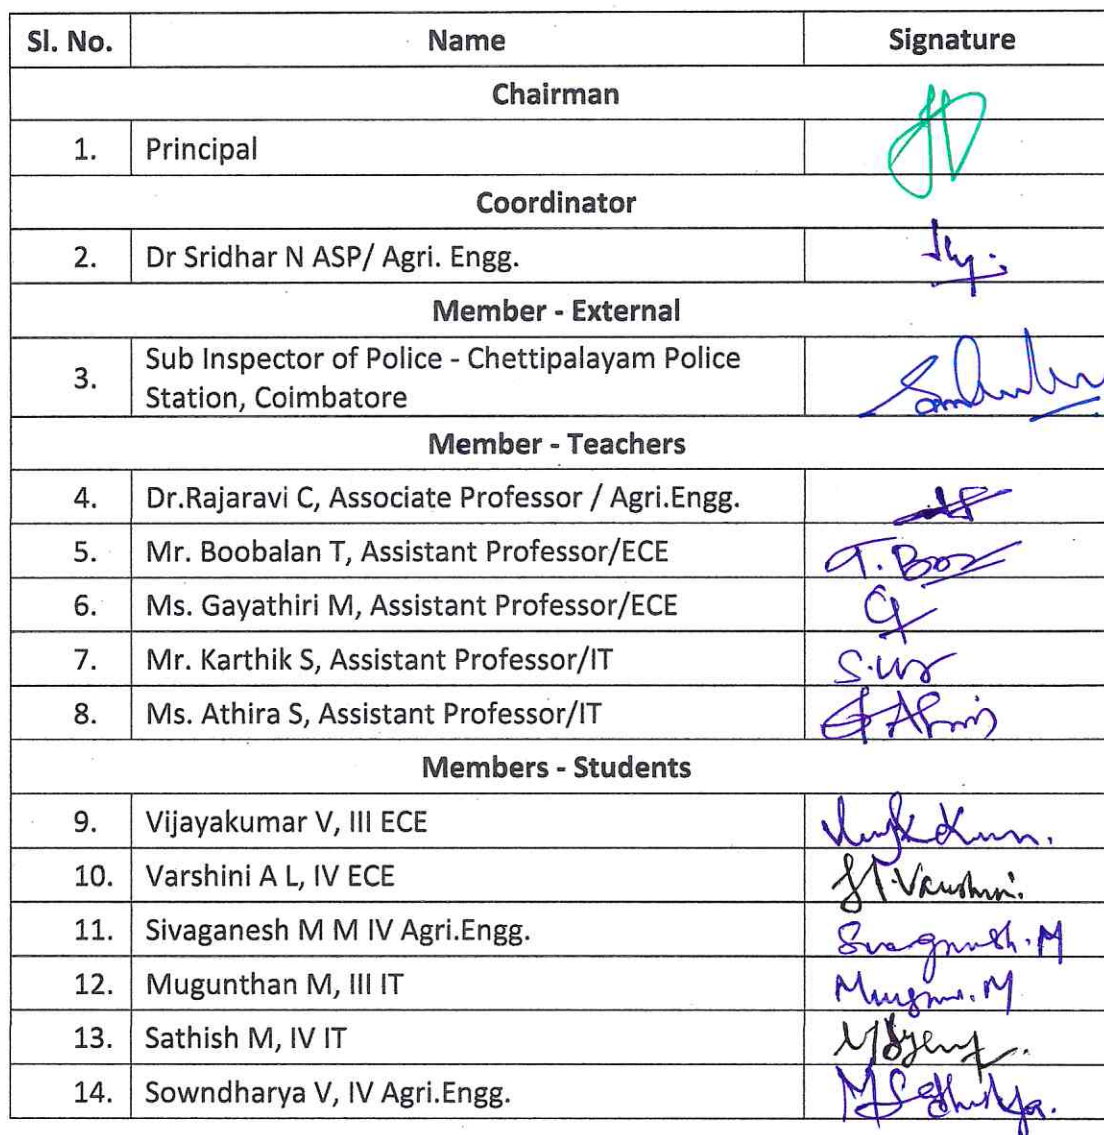 Sl. No. Name Signature
Chairman
1. Principal
Coordinator
2. Dr Sridhar N ASP/ Agri. Engg.
Member - External
3. Sub Inspector of Police - Chettipalayam Police
Station, Coimbatore
Member - Teachers
4. Dr.Rajaravi C, Associate Professor / Agri.Engg.
5. Mr. Boobalan T, Assistant Professor/ECE
6. Ms. Gayathiri M, Assistant Professor/ECE
7. Mr. Karthik S, Assistant Professor/IT
8. Ms. Athira S, Assistant Professor/IT
Members - Students
9. Vijayakumar V, III ECE
10. Varshini A L, IV ECE
11. Sivaganesh M M IV Agri.Engg.
12. Mugunthan M, III IT
13. Sathish M, IV IT
14. Sowndharya V, IV Agri.Engg.